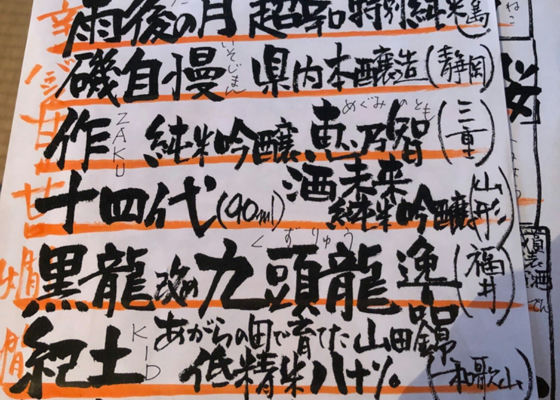 雨後の月 超辛 特別純米
磯自慢 いそじまん 県内本醸造 (静岡)
作 ZAKU 純米吟醸 恵乃智 めぐみのとも (三重)
十四代 (90ml) 酒未来 純米吟醸 (山形)
黒龍 改め 九頭龍 くずりゅう 逸品 (福井)
紀土 KID あがらの田で育てた山田錦
低精米八十% (和歌山)